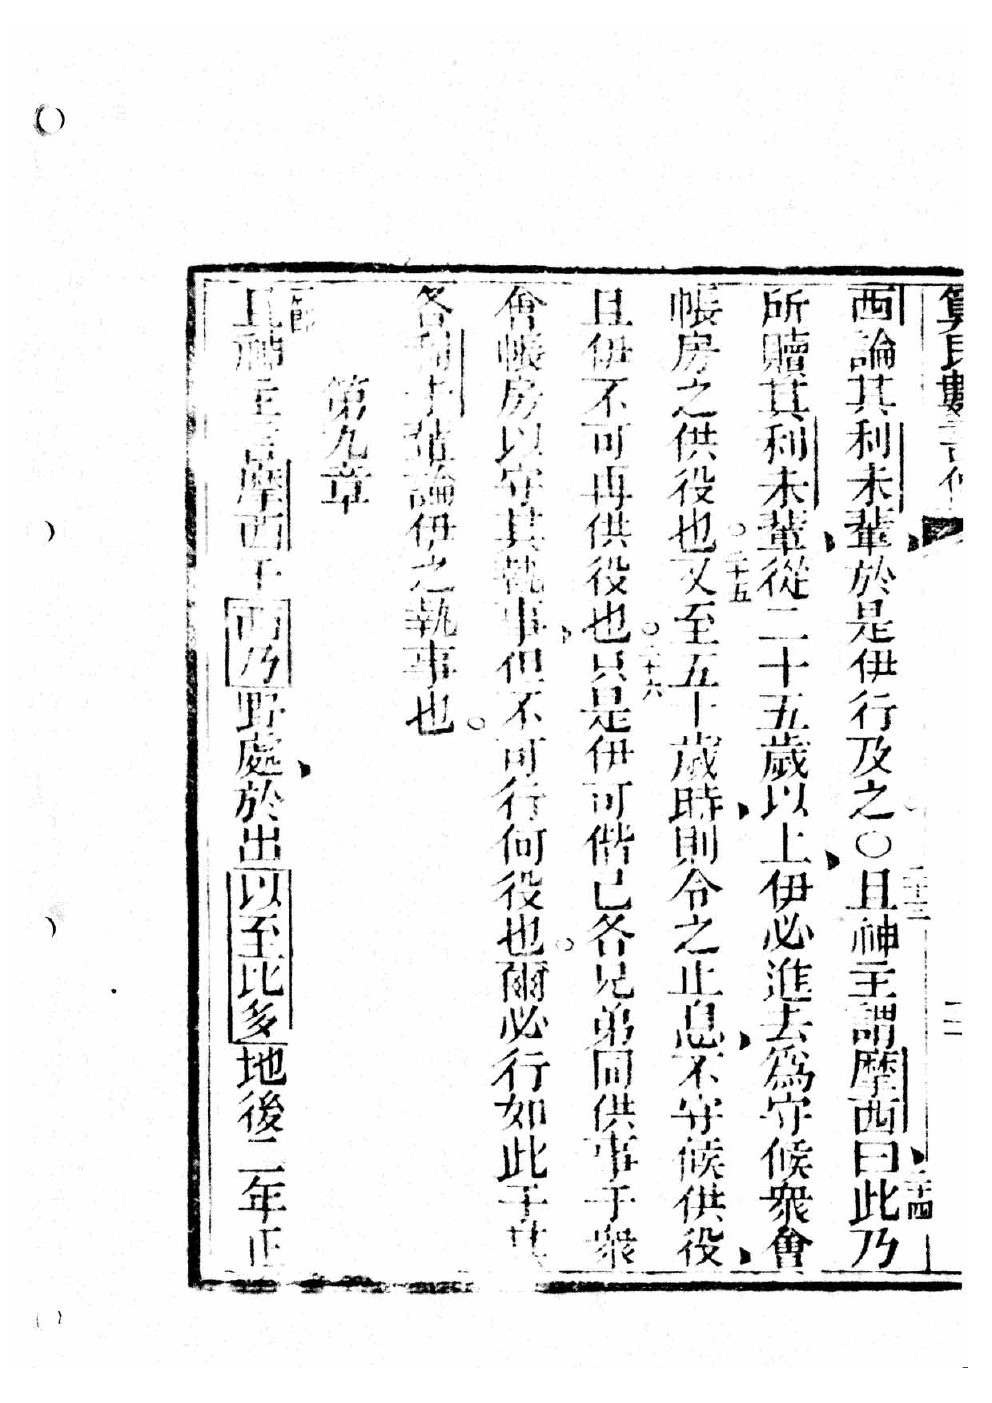 算民數書傳
二
西論其利未輩於是伊行及之○二十三且神主謂摩西曰二十四此乃
所贖其利未輩從二十五歲以上伊必進去為守候衆會
帳房之供役也○二十五又至五十歲時則令之止息不守候供役
且伊不可再供役也○二十六只是伊可偕已各兄弟同供事于衆
會帳房以守其執事但不可行何役也○爾必行如此于其
各利未輩論伊之執事也○
第九章
一節且神主言摩西于西乃野處於出以至比多地後二年正